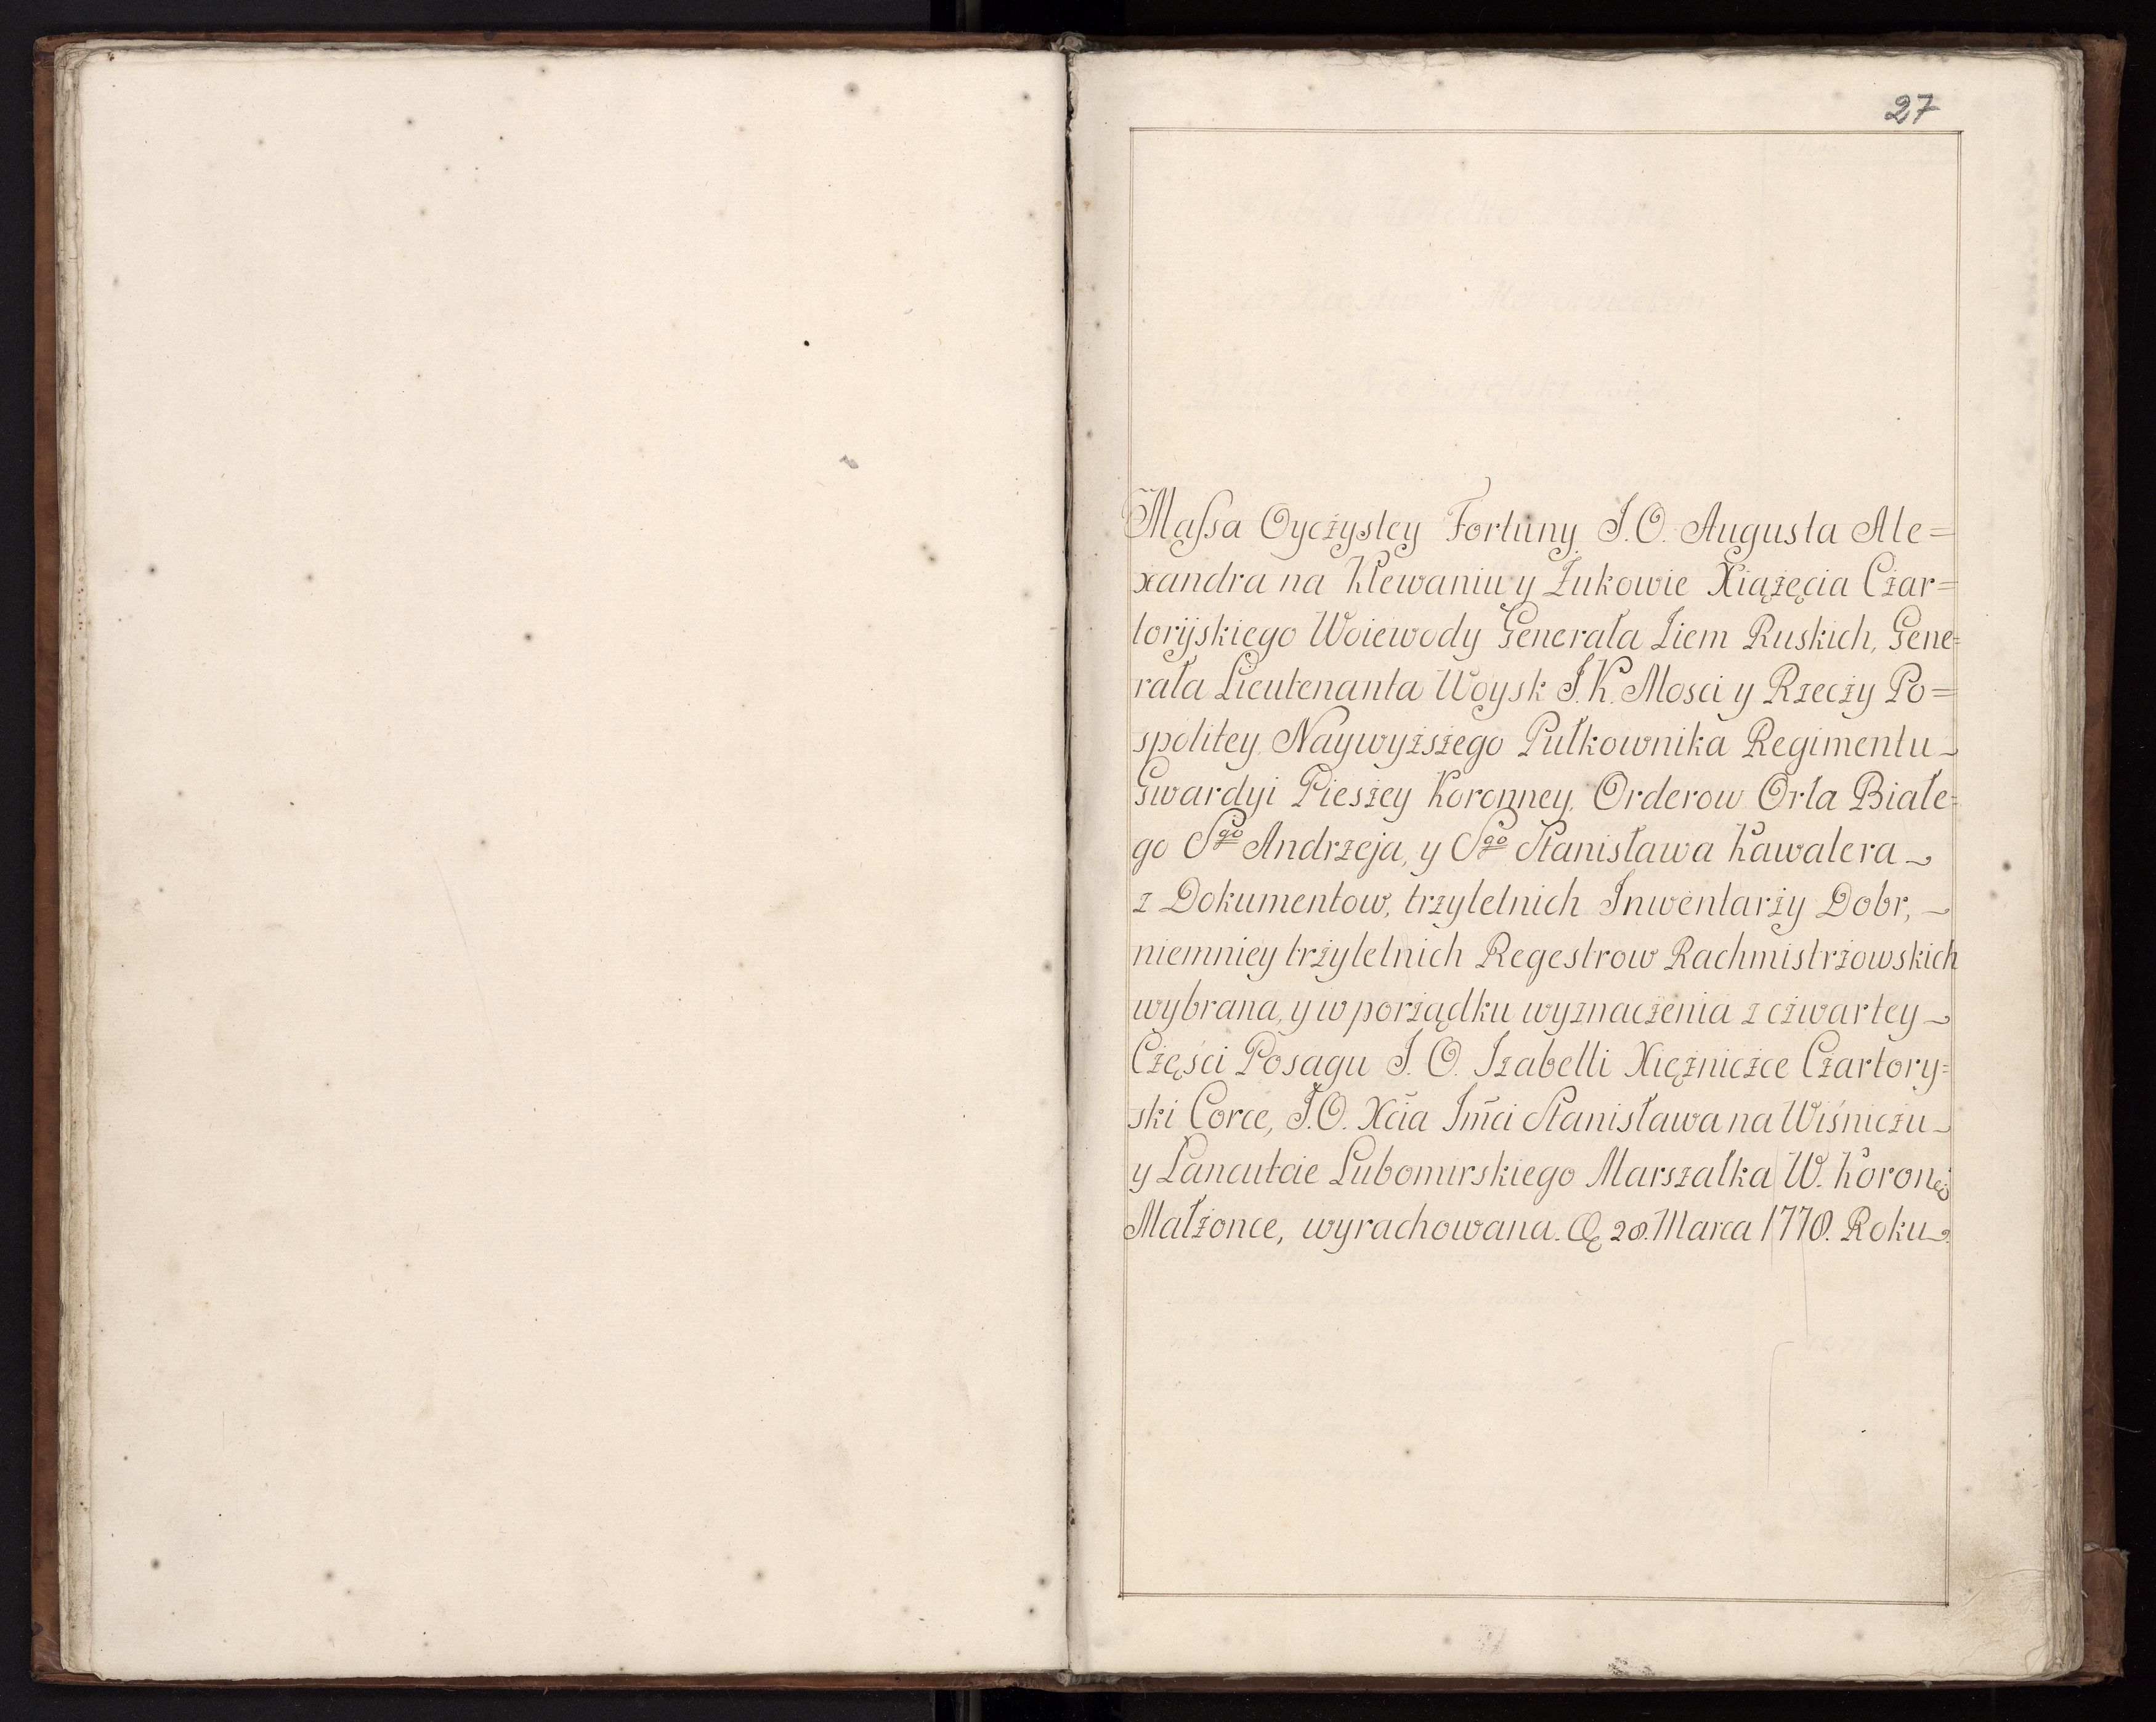 27
Maſsa Oyczystey Fortuny J. O. Augusta Ale=
xandra na Klewaniu y Żukowie Xiążęcia Czar=
toryskiego Woiewody Generała Ziem Ruskich, Gene=
rała Lieutenanta Woysk J. K. Mosci y Rzeczy Po=
spolitey, Naywyższego Pułkownika Regimentu
Gwardyi Pieszey Koronney, Orderow Orła Białe=
go Sgo Andrzeja, y Sgo Stanisława Kawalera
z Dokumentow, trzyletnich Inwentarzy Dobr,
niemniey trzyletnich Regestrow Rachmistrzowskich
wybrana, y w porządku wyznaczenia z czwartey
Części Posagu J. O. Izabelli Xiężniczce Czartory=
ski Corce, J. O. Xcia Jmci Stanisława na Wiśniczu
y Lancutcie Lubomirskiego Marszałka W. Koroneo
Małżonce, wyrachowana. 28. Marca 1778. Roku.